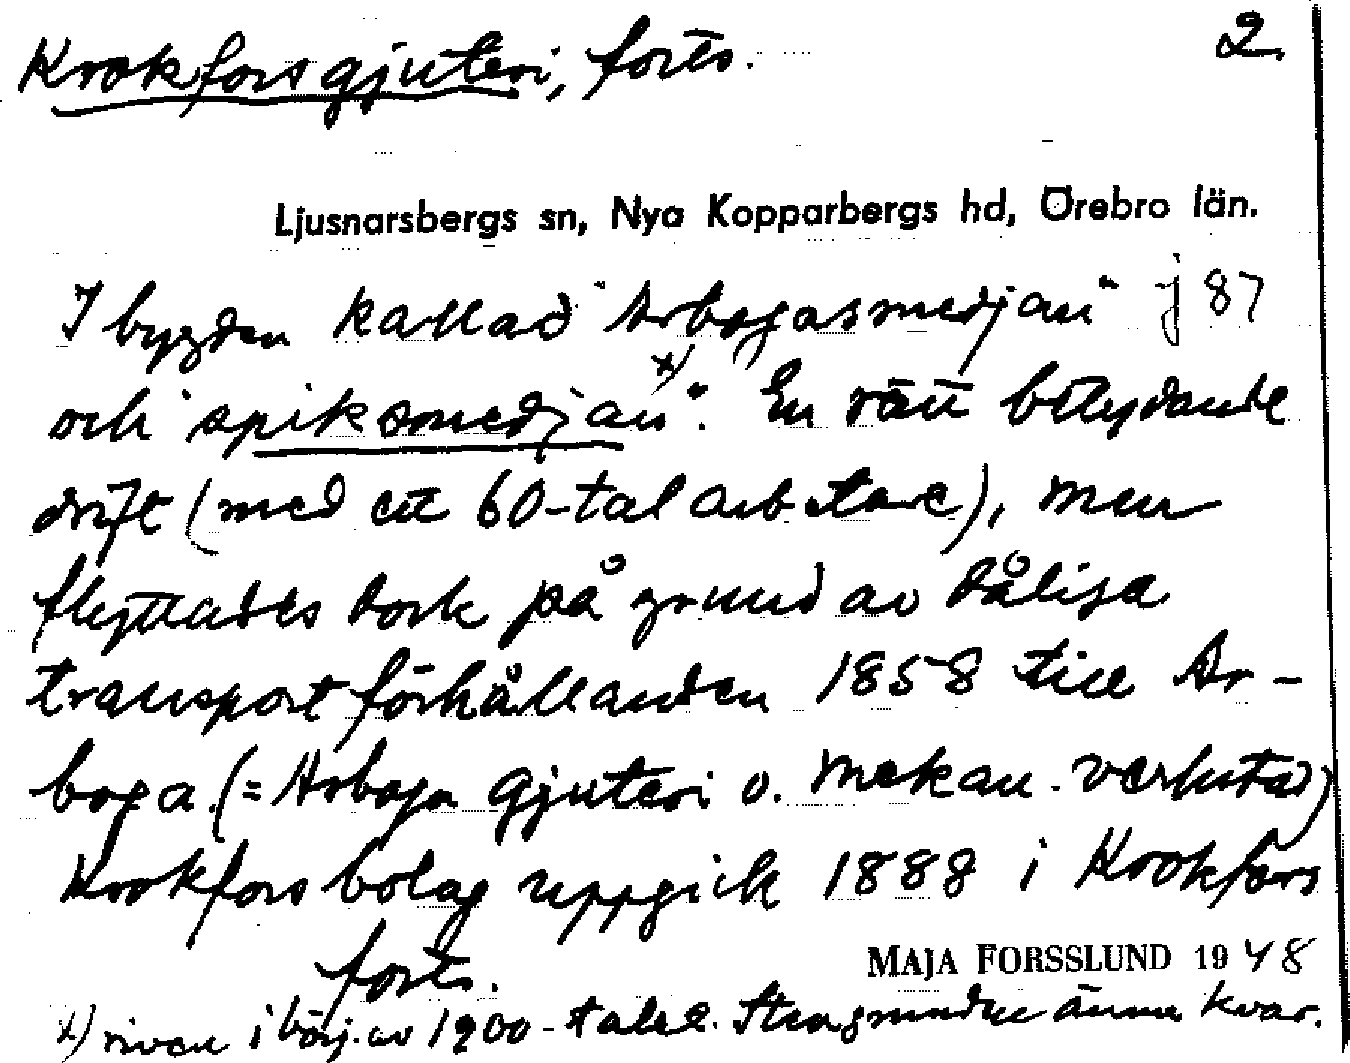 Krokforsgjuteri, forts. 2.
Ljusnarsbergs sn, Nya Kopparbergs hd, Örebro län.
I bygden kallad "Arbogasmedjan" j 87
och "spiksmedjan x)". En rätt betydande
drift (med ett 60-tal arbetare), men
flyttades dock på grund av dåliga
transportförhållanden 1858 till Ar-
boga. (= Arboga Gjuteri o. Mekan. Verkstad)
Krokfors bolag uppgick 1888 i Krokfors
forts.
MAJA FORSSLUND 1948
x) riven i börj. av 1900-talet. Stengrunden ännu kvar.